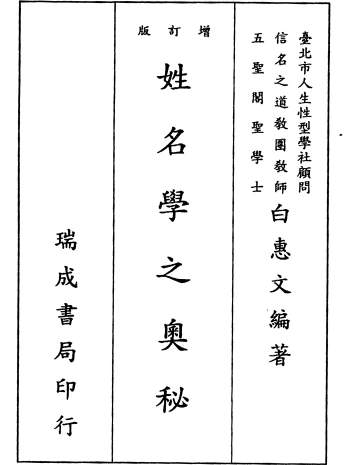 臺北市人生性型學社顧問
信名之道教團教師
五聖閣聖學士
白惠文編著
增訂版
姓名學之奧秘
瑞成書局印行